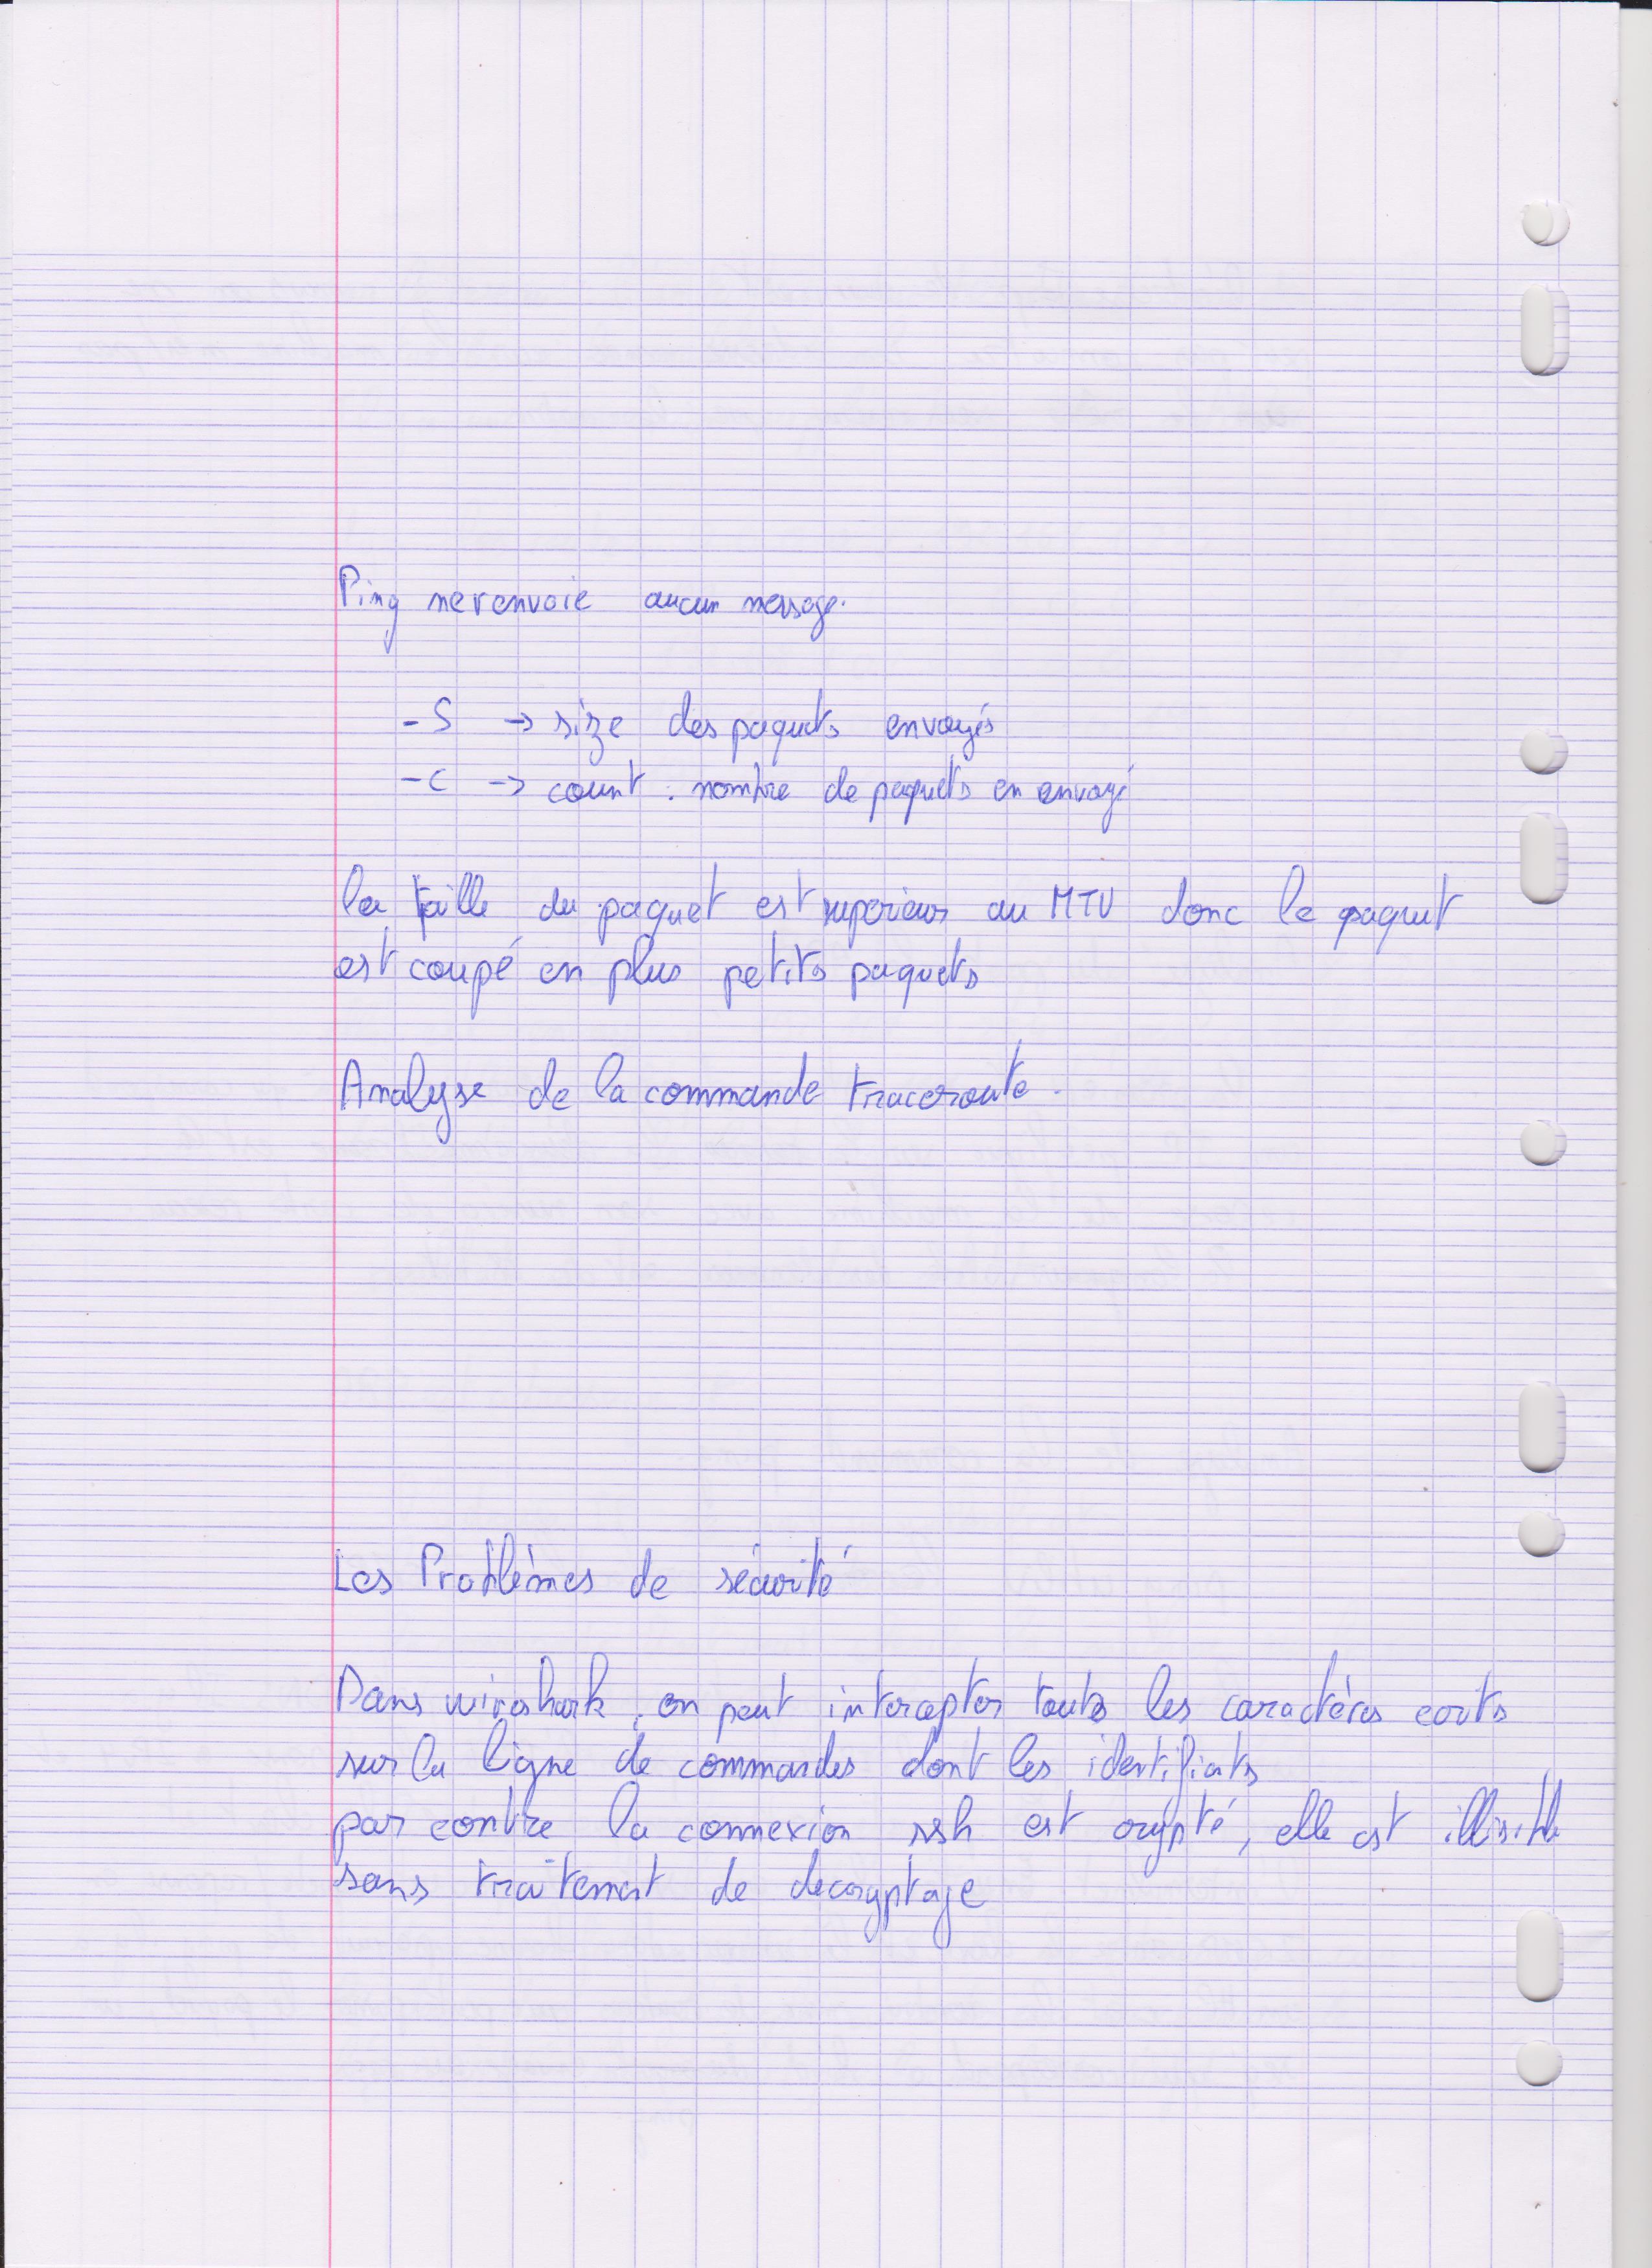 Ping ne renvoie aucun message.
- S → size des paquets envoyés
- C → count : nombre de paquets en envoyé
la taille du paquet est superieur au MTU donc le paquet
est coupé en plus petits paquets
Analyse de la commande traceroute.
Les Problèmes de sécurité
Dans wireshark, on peut intercepter touts les caractères ecrits
sur la ligne de commandes dont les identifiants
par contre la connexion ssh est crypté, elle est illisible
sans traitement de decryptage